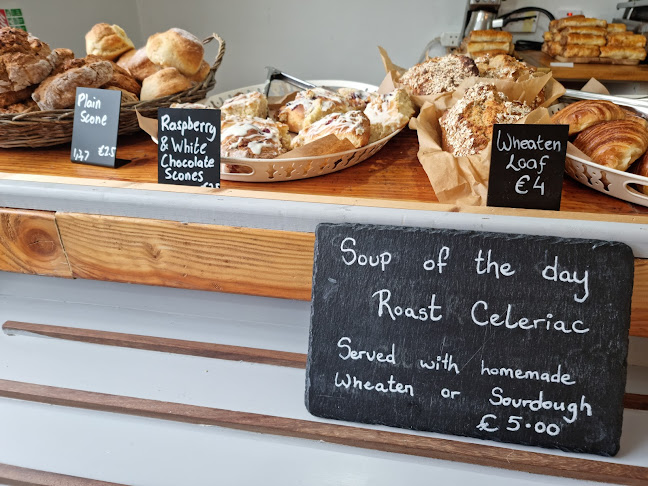 Plain
Scone
1,2,7 €2.5
Raspberry
& White
Chocolate
Scones
Wheaten
Loaf
€4
Soup of the day
Roast Celeriac
Served with homemade
Wheaten or Sourdough
€5.00